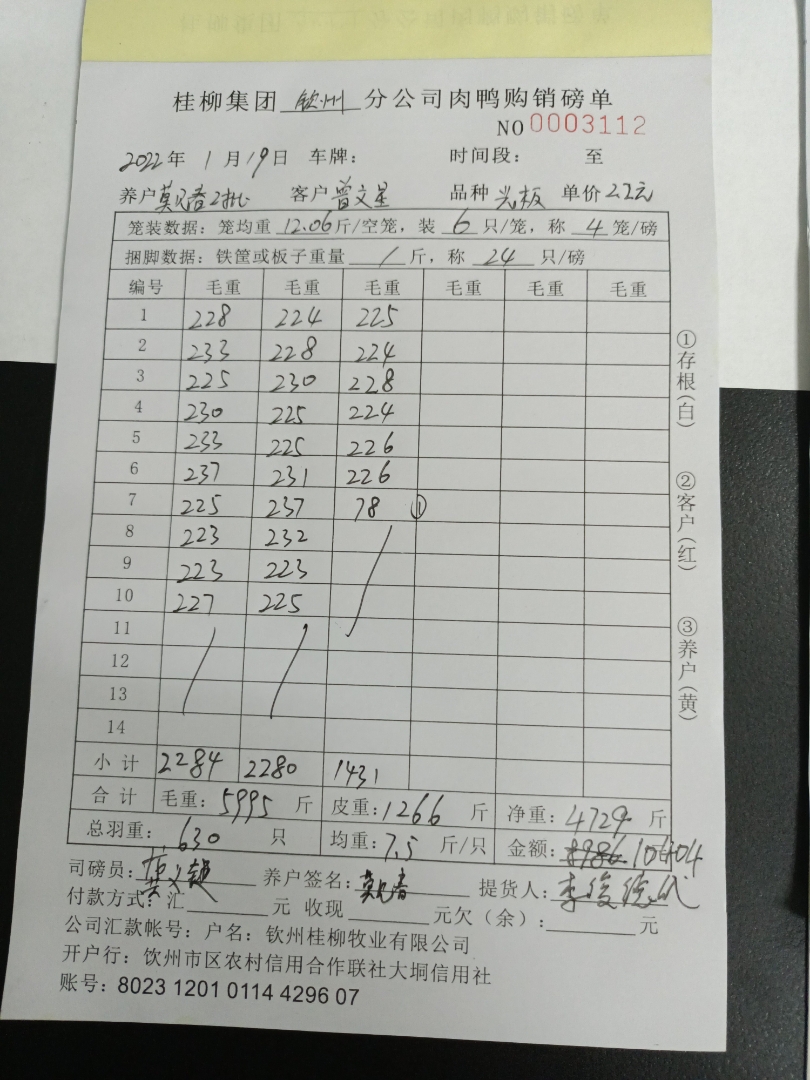 桂柳集团 钦州 分公司肉鸭购销磅单
NO 0003112
2022年 1月19日 车牌： 时间段： 至
养户 莫兄春2批 客户 曾文星 品种 光板 单价 2.2元
笼装数据：笼均重 12.06 斤/空笼，装 6 只/笼，称 4 笼/磅
捆脚数据：铁筐或板子重量 / 斤，称 24 只/磅
编号 毛重 毛重 毛重 毛重 毛重 毛重
1 228 224 225
2 233 228 224
3 225 230 228
4 230 225 224
5 233 225 226
6 237 231 226
7 225 237 78 ①
8 223 232
9 223 223
10 227 225
11
12
13
14
小计 2284 2280 1431
合计 毛重：5995 斤 皮重：1266 斤 净重：4729 斤
总羽重：630 只 均重：7.5 斤/只 金额：10404
司磅员： 养户签名：莫兄春 提货人：李俊德代
付款方式：汇 元 收现 元欠（余）： 元
公司汇款帐号：户名：钦州桂柳牧业有限公司
开户行：钦州市区农村信用合作联社大垌信用社
账号：8023 1201 0114 4296 07
①存根（白）
②客户（红）
③养户（黄）